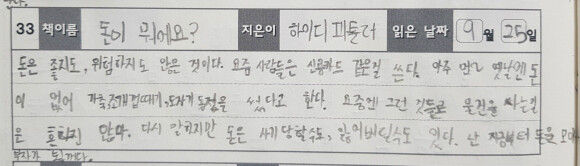 33 책이름 돈이 뭐에요? 지은이 하이디 피들러 읽은 날짜 9월 25일
돈은 좋지도, 위험하지도 않은 것이다. 요즘 사람들은 신용카드 같은걸 쓴다. 아주 먼 옛날엔 돈
이 없어 가축, 조개껍데기, 도자기 동전을 썼다고 한다. 요즘엔 그런 것들로 물건을 사는걸
은 흔하지 않다. 다시 말하지만 돈은 사기 당할수도, 잃어버릴수도 있다. 난 지금부터 돈을
부자가 될꺼다.